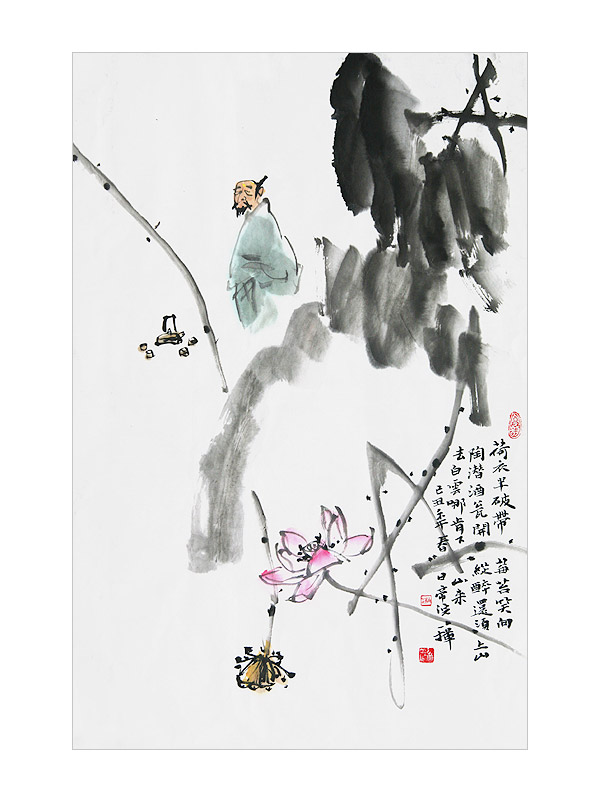 荷衣半破帶莓苔笑向
陶潜酒瓮開縱醉還須上山
去白雲哪肯下山来
己丑年春日揮